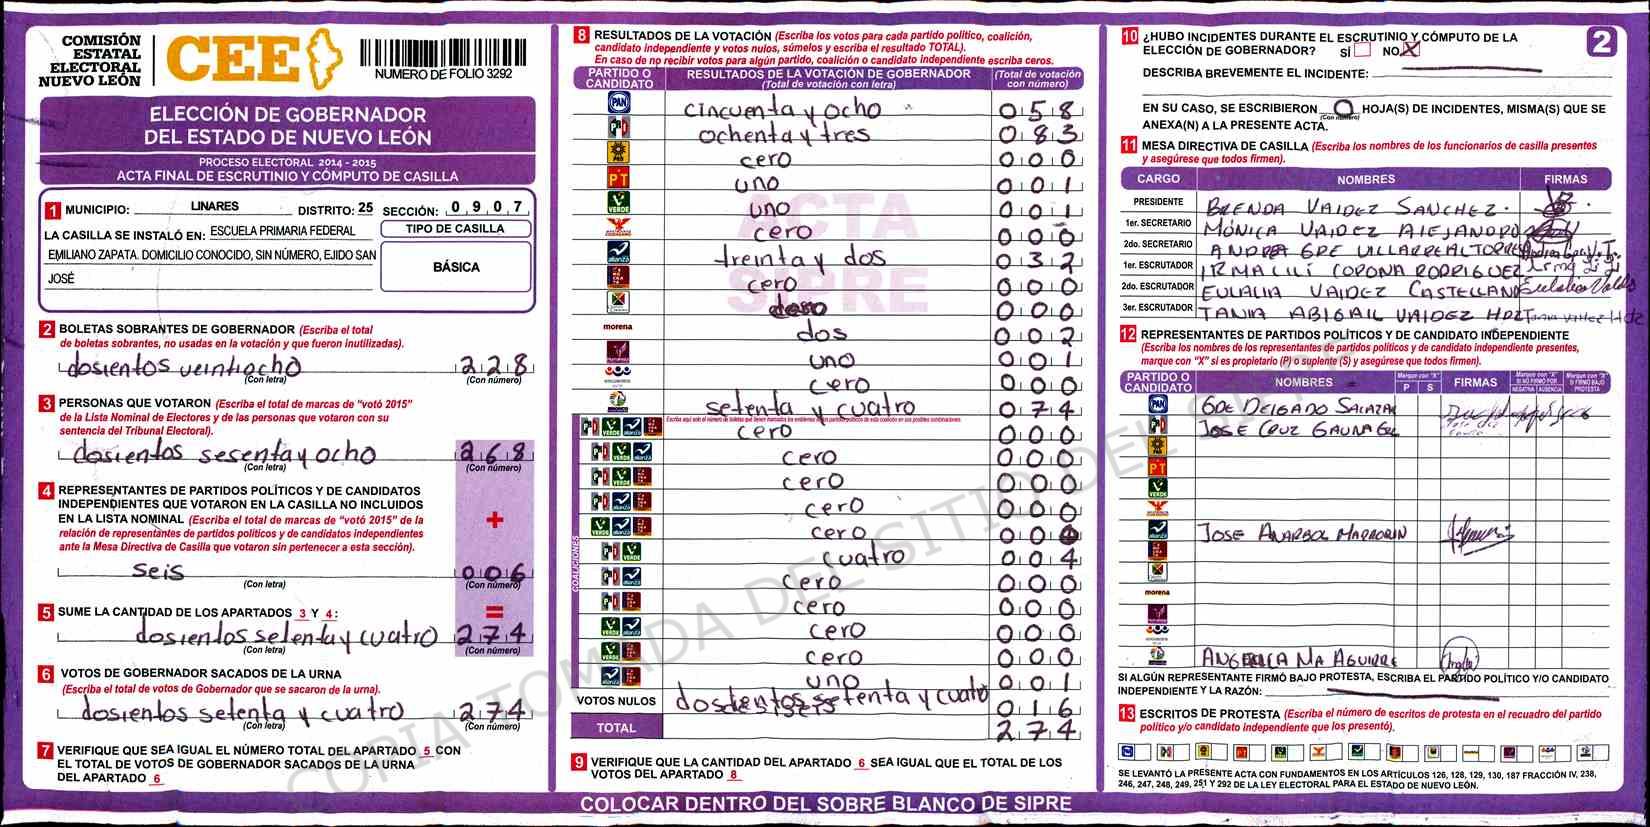 COMISIÓN
ESTATAL
ELECTORAL
NUEVO LEÓN
CEE
NUMERO DE FOLIO 3292
ELECCIÓN DE GOBERNADOR
DEL ESTADO DE NUEVO LEÓN
PROCESO ELECTORAL 2014 - 2015
ACTA FINAL DE ESCRUTINIO Y CÓMPUTO DE CASILLA
1 MUNICIPIO: LINARES DISTRITO: 25 SECCIÓN: 0 9 0 7
LA CASILLA SE INSTALÓ EN: ESCUELA PRIMARIA FEDERAL
EMILIANO ZAPATA. DOMICILIO CONOCIDO, SIN NÚMERO, EJIDO SAN
JOSÉ
TIPO DE CASILLA
BÁSICA
2 BOLETAS SOBRANTES DE GOBERNADOR (Escriba el total
de boletas sobrantes, no usadas en la votación y que fueron inutilizadas).
dosientos veintiocho 228
(Con letra) (Con número)
3 PERSONAS QUE VOTARON (Escriba el total de marcas de "votó 2015"
de la Lista Nominal de Electores y de las personas que votaron con su
sentencia del Tribunal Electoral).
dosientos sesenta y ocho 268
(Con letra) (Con número)
4 REPRESENTANTES DE PARTIDOS POLÍTICOS Y DE CANDIDATOS
INDEPENDIENTES QUE VOTARON EN LA CASILLA NO INCLUIDOS
EN LA LISTA NOMINAL (Escriba el total de marcas de "votó 2015" de la
relación de representantes de partidos políticos y de candidatos independientes
ante la Mesa Directiva de Casilla que votaron sin pertenecer a esta sección).
+
seis 006
(Con letra) (Con número)
5 SUME LA CANTIDAD DE LOS APARTADOS 3 Y 4: =
dosientos setenta y cuatro 274
(Con letra) (Con número)
6 VOTOS DE GOBERNADOR SACADOS DE LA URNA
(Escriba el total de votos de Gobernador que se sacaron de la urna).
dosientos setenta y cuatro 274
(Con letra) (Con número)
7 VERIFIQUE QUE SEA IGUAL EL NÚMERO TOTAL DEL APARTADO 5 CON
EL TOTAL DE VOTOS DE GOBERNADOR SACADOS DE LA URNA
DEL APARTADO 6
8 RESULTADOS DE LA VOTACIÓN (Escriba los votos para cada partido político, coalición,
candidato independiente y votos nulos, súmelos y escriba el resultado TOTAL).
En caso de no recibir votos para algún partido, coalición o candidato independiente escriba ceros.
PARTIDO O CANDIDATO RESULTADOS DE LA VOTACIÓN DE GOBERNADOR (Total de votación con letra) (Total de votación con número)
PAN cincuenta y ocho 058
PRI ochenta y tres 083
PRD cero 000
PT uno 001
VERDE uno 001
cero 000
alianza treinta y dos 032
cero 000
000
morena dos 002
uno 001
cero 000
setenta y cuatro 074
Escriba aquí solo el número de boletas que tienen marcados los emblemas de los partidos políticos de esta coalición en sus posibles combinaciones
COALICIONES
PRI VERDE alianza cero 000
PRI VERDE alianza cero 000
PRI VERDE cero 000
PRI alianza cero 000
VERDE alianza cero 000
PRI VERDE cuatro 004
PRI alianza cero 000
PRI cero 000
VERDE alianza cero 000
VERDE cero 000
alianza uno 001
VOTOS NULOS dosientos setenta y cuatro 016
TOTAL 274
ACTA
SIPRE
9 VERIFIQUE QUE LA CANTIDAD DEL APARTADO 6 SEA IGUAL QUE EL TOTAL DE LOS
VOTOS DEL APARTADO 8
COLOCAR DENTRO DEL SOBRE BLANCO DE SIPRE
COPIA TOMADA DEL SITIO DEL SIPRE
2
10 ¿HUBO INCIDENTES DURANTE EL ESCRUTINIO Y CÓMPUTO DE LA
ELECCIÓN DE GOBERNADOR? SÍ NO X
DESCRIBA BREVEMENTE EL INCIDENTE:
EN SU CASO, SE ESCRIBIERON 0 HOJA(S) DE INCIDENTES, MISMA(S) QUE SE
(Con número)
ANEXA(N) A LA PRESENTE ACTA.
11 MESA DIRECTIVA DE CASILLA (Escriba los nombres de los funcionarios de casilla presentes
y asegúrese que todos firmen).
CARGO NOMBRES FIRMAS
PRESIDENTE BRENDA VALDEZ SANCHEZ.
1er. SECRETARIO MÓNICA VALDEZ ALEJANDRO
2do. SECRETARIO ANDREA GPE VILLARREAL TORRES
1er. ESCRUTADOR IRMA LILI CORONA RODRIGUEZ
2do. ESCRUTADOR EULALIA VALDEZ CASTELLANO
3er. ESCRUTADOR TANIA ABIGAIL VALDEZ HDZ
12 REPRESENTANTES DE PARTIDOS POLÍTICOS Y DE CANDIDATO INDEPENDIENTE
(Escriba los nombres de los representantes de partidos políticos y de candidato independiente presentes,
marque con "X" si es propietario (P) o suplente (S) y asegúrese que todos firmen).
PARTIDO O CANDIDATO NOMBRES Marque con "X" P S FIRMAS Marque con "X" SI NO FIRMÓ POR NEGATIVA AUSENCIA Marque con "X" SI FIRMÓ BAJO PROTESTA
PAN GPE DELGADO SALAZAR
PRI JOSE CRUZ GAUNA
PRD
PT
VERDE
alianza JOSE
morena
ANGELICA MA AGUIRRE
SI ALGÚN REPRESENTANTE FIRMÓ BAJO PROTESTA, ESCRIBA EL PARTIDO POLÍTICO Y/O CANDIDATO
INDEPENDIENTE Y LA RAZÓN:
13 ESCRITOS DE PROTESTA (Escriba el número de escritos de protesta en el recuadro del partido
político y/o candidato independiente que los presentó).
SE LEVANTÓ LA PRESENTE ACTA CON FUNDAMENTOS EN LOS ARTÍCULOS 126, 128, 129, 130, 187 FRACCIÓN IV, 238,
246, 247, 248, 249, 251 Y 292 DE LA LEY ELECTORAL PARA EL ESTADO DE NUEVO LEÓN.